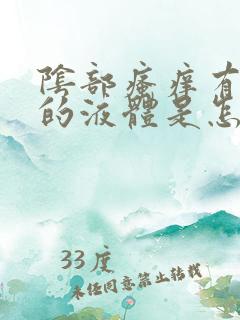 陰部瘙痒有
的液體是怎
33度
未经同意禁止转载